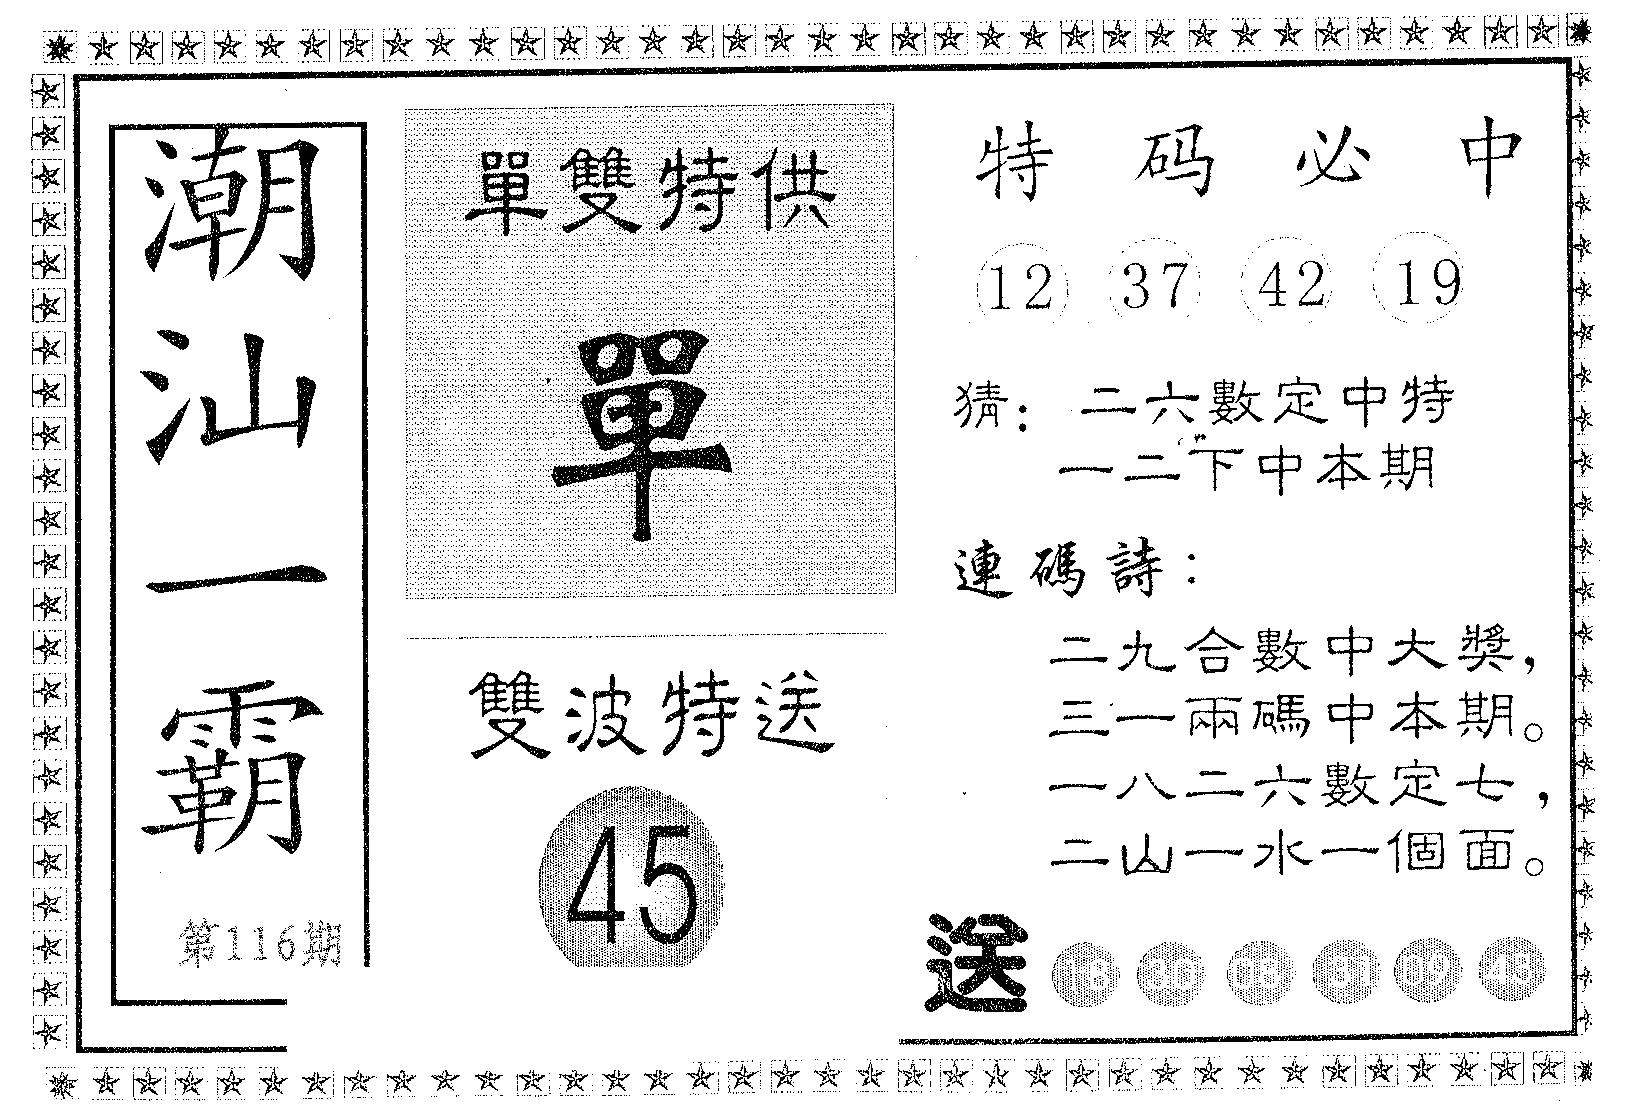 潮汕一霸
第116期
單雙特供
單
雙波特送
45
特码必中
12 37 42 19
猜：二六數定中特
一二下中本期
連碼詩：
二九合數中大獎，
三一兩碼中本期。
一八二六數定七，
二山一水一個面。
送